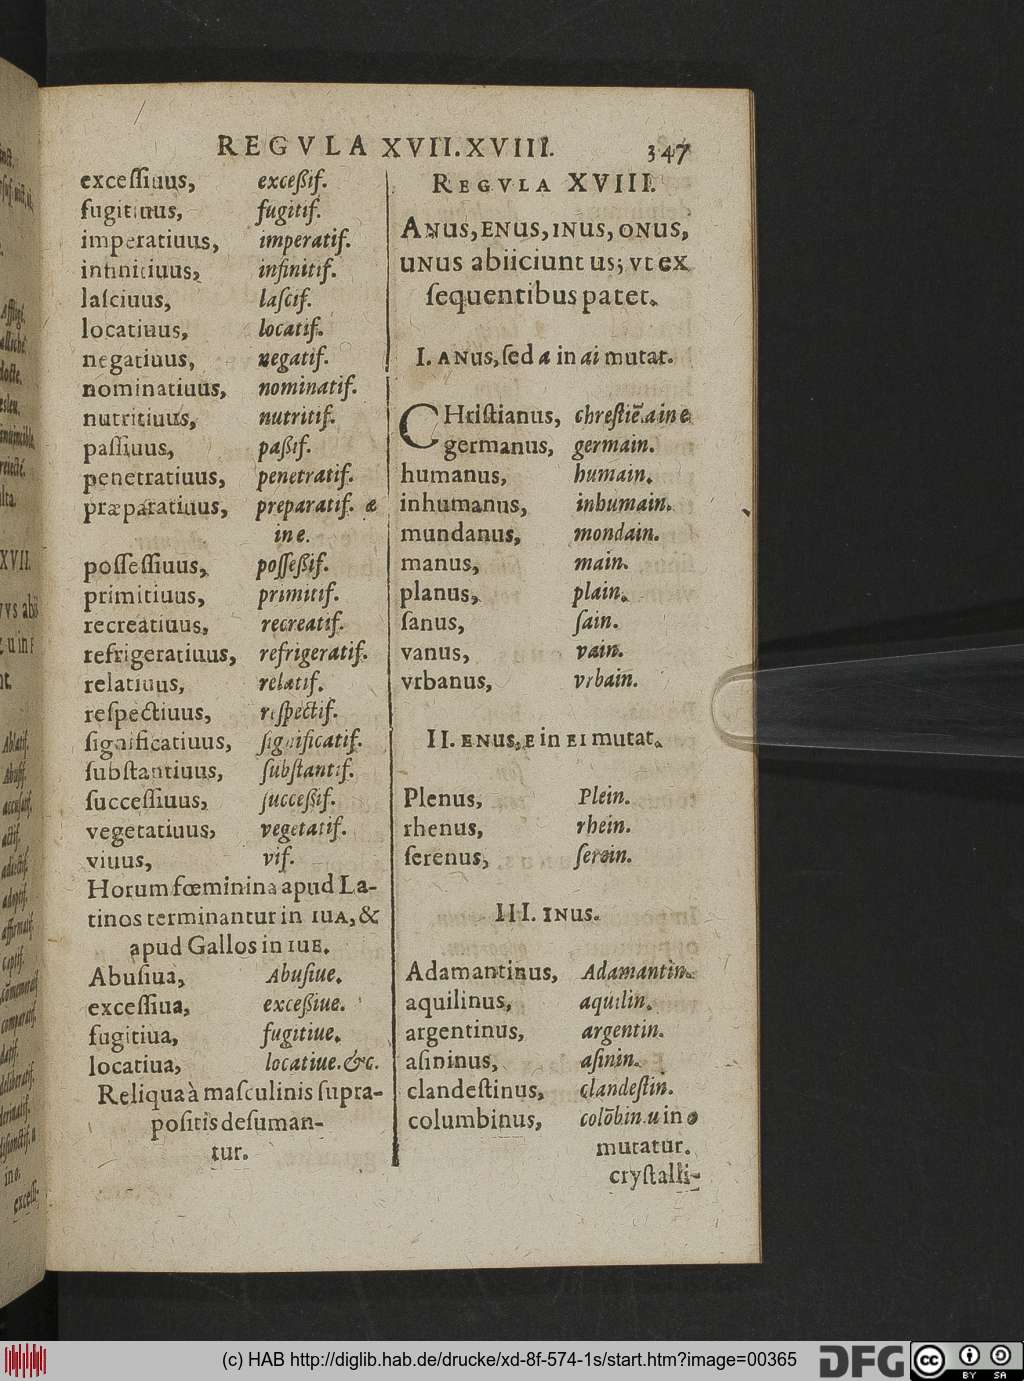 REGVLA XVII.XVIII. 347
exceſſiuus, exceßif.
fugitiuus, fugitif.
imperatiuus, imperatif.
infinitiuus, infinitif.
laſciuus, laſcif.
locatiuus, locatif.
negatiuus, negatif.
nominatiuus, nominatif.
nutritiuus, nutritif.
paſſiuus, paßif.
penetratiuus, penetratif.
præparatiuus, preparatif. æ
in e.
poſſeſſiuus, poſſeßif.
primitiuus, primitif.
recreatiuus, recreatif.
refrigeratiuus, refrigeratif.
relatiuus, relatif.
reſpectiuus, reſpectif.
ſignificatiuus, ſignificatif.
ſubſtantiuus, ſubſtantif.
ſucceſſiuus, ſucceßif.
vegetatiuus, vegetatif.
viuus, vif.
Horum fœminina apud La-
tinos terminantur in IUA, &
apud Gallos in IUE.
Abuſiua, Abuſiue.
exceſſiua, exceßiue.
fugitiua, fugitiue.
locatiua, locatiue. &c.
Reliqua à maſculinis ſupra-
poſitis deſuman-
tur.
REGVLA XVIII.
ANUS, ENUS, INUS, ONUS,
UNUS abiiciunt us; vt ex
ſequentibus patet.
I. ANUS, ſed a in ai mutat.
CHriſtianus, chreſtiē. a in e
germanus, germain.
humanus, humain.
inhumanus, inhumain.
mundanus, mondain.
manus, main.
planus, plain.
ſanus, ſain.
vanus, vain.
vrbanus, vrbain.
II. ENUS, E in EI mutat.
Plenus, Plein.
rhenus, rhein.
ſerenus, ſerein.
III. INUS.
Adamantinus, Adamantin.
aquilinus, aquilin.
argentinus, argentin.
aſininus, aſinin.
clandeſtinus, clandeſtin.
columbinus, colōbin. u in o
mutatur.
cryſtalli-
(c) HAB http://diglib.hab.de/drucke/xd-8f-574-1s/start.htm?image=00365
DFG
cc BY SA